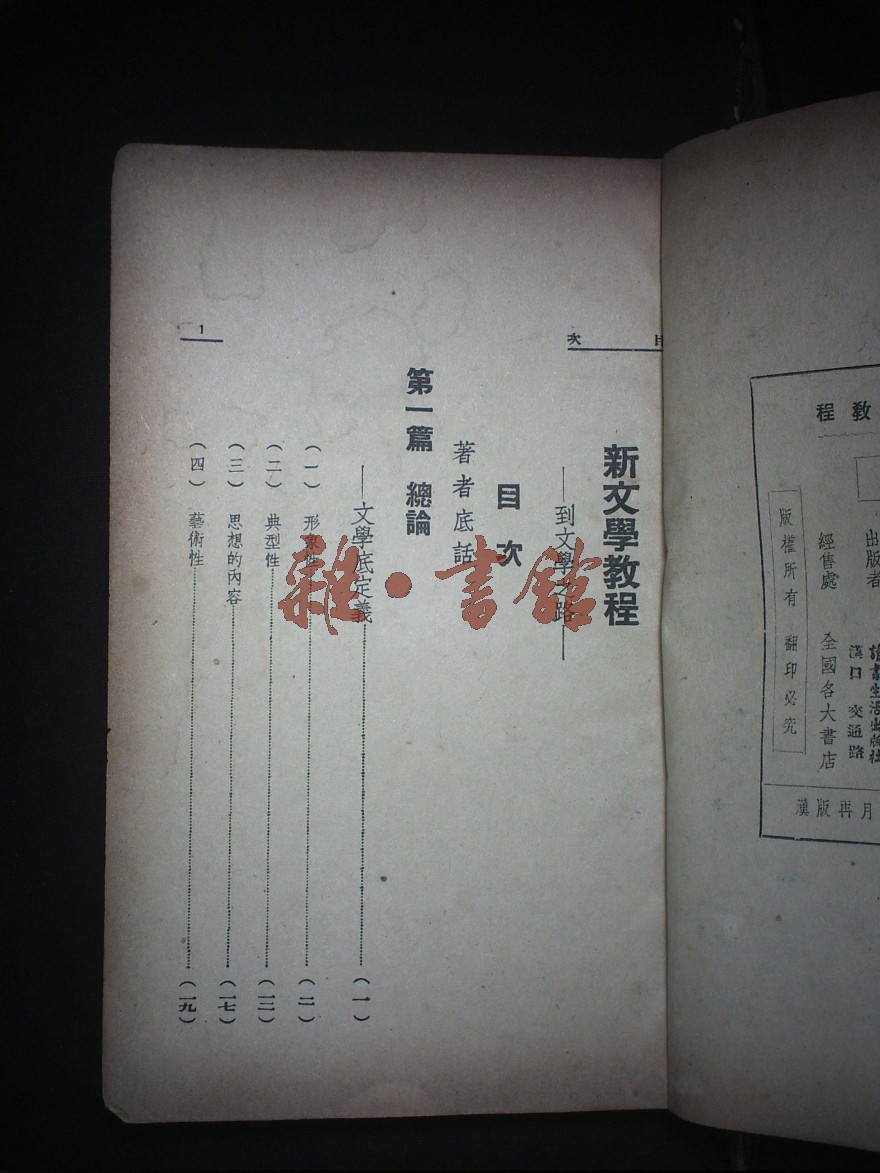 教程
出版者
讀書生活出版社
漢口 交通路
經售處 全國各大書店
版權所有 翻印必究
月再版漢
目次
新文學教程
——到文學之路——
目次
著者底話
第一篇 總論
——文學底定義……(一)
(一) 形象性……(二)
(二) 典型性……(一三)
(三) 思想的內容……(一七)
(四) 藝術性……(一九)
1
雜·書館